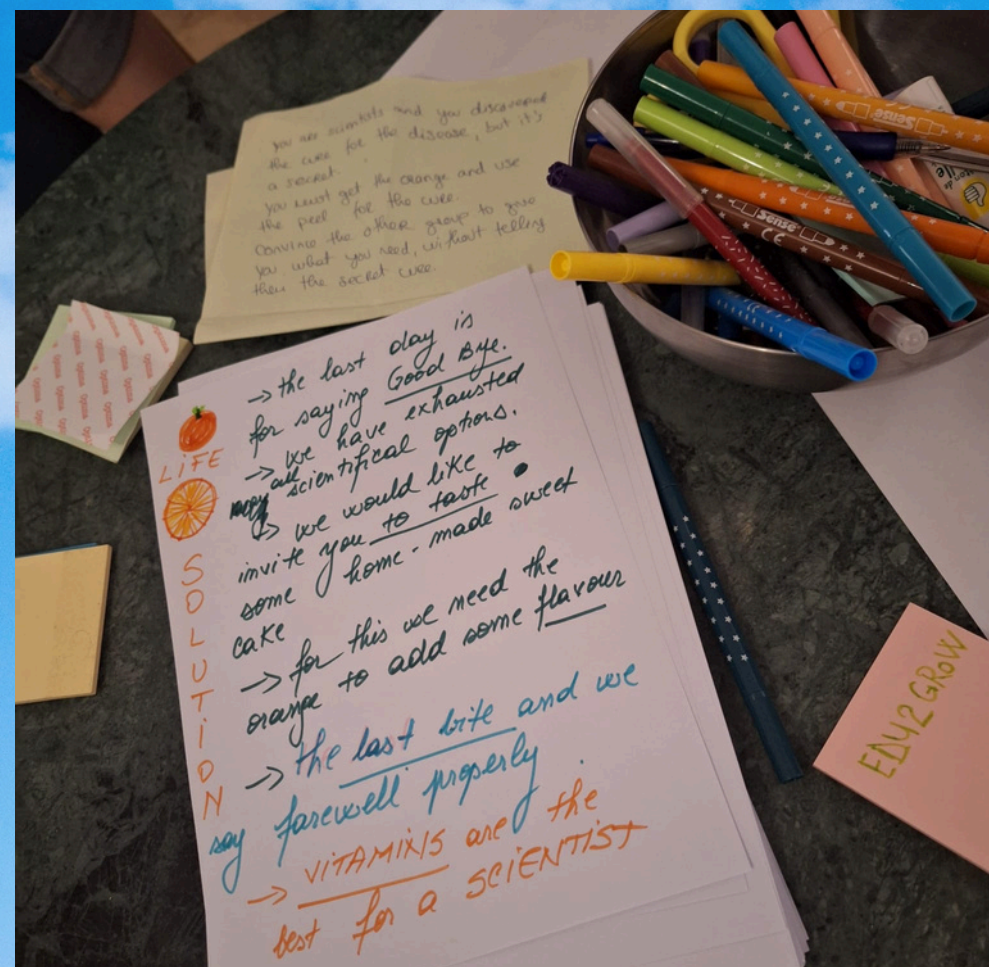 you are scientists and you discovered
the cure for the disease, but it's
a secret.
you must get the orange and use
the peel for the cure.
convince the other group to give
you what you need, without telling
them the secret cure.
→ the last day is
for saying Good Bye.
→ we have exhausted
all scientifical options.
→ we would like to
invite you to taste
some home-made sweet
cake
→ for this we need the
orange to add some flavour
→ the last bite and we
say farewell properly.
→ VITAMINS are the
best for a SCIENTIST
LIFE
SOLUTION
EDY2GROW
Sense
Sense
CE
Ogizoa